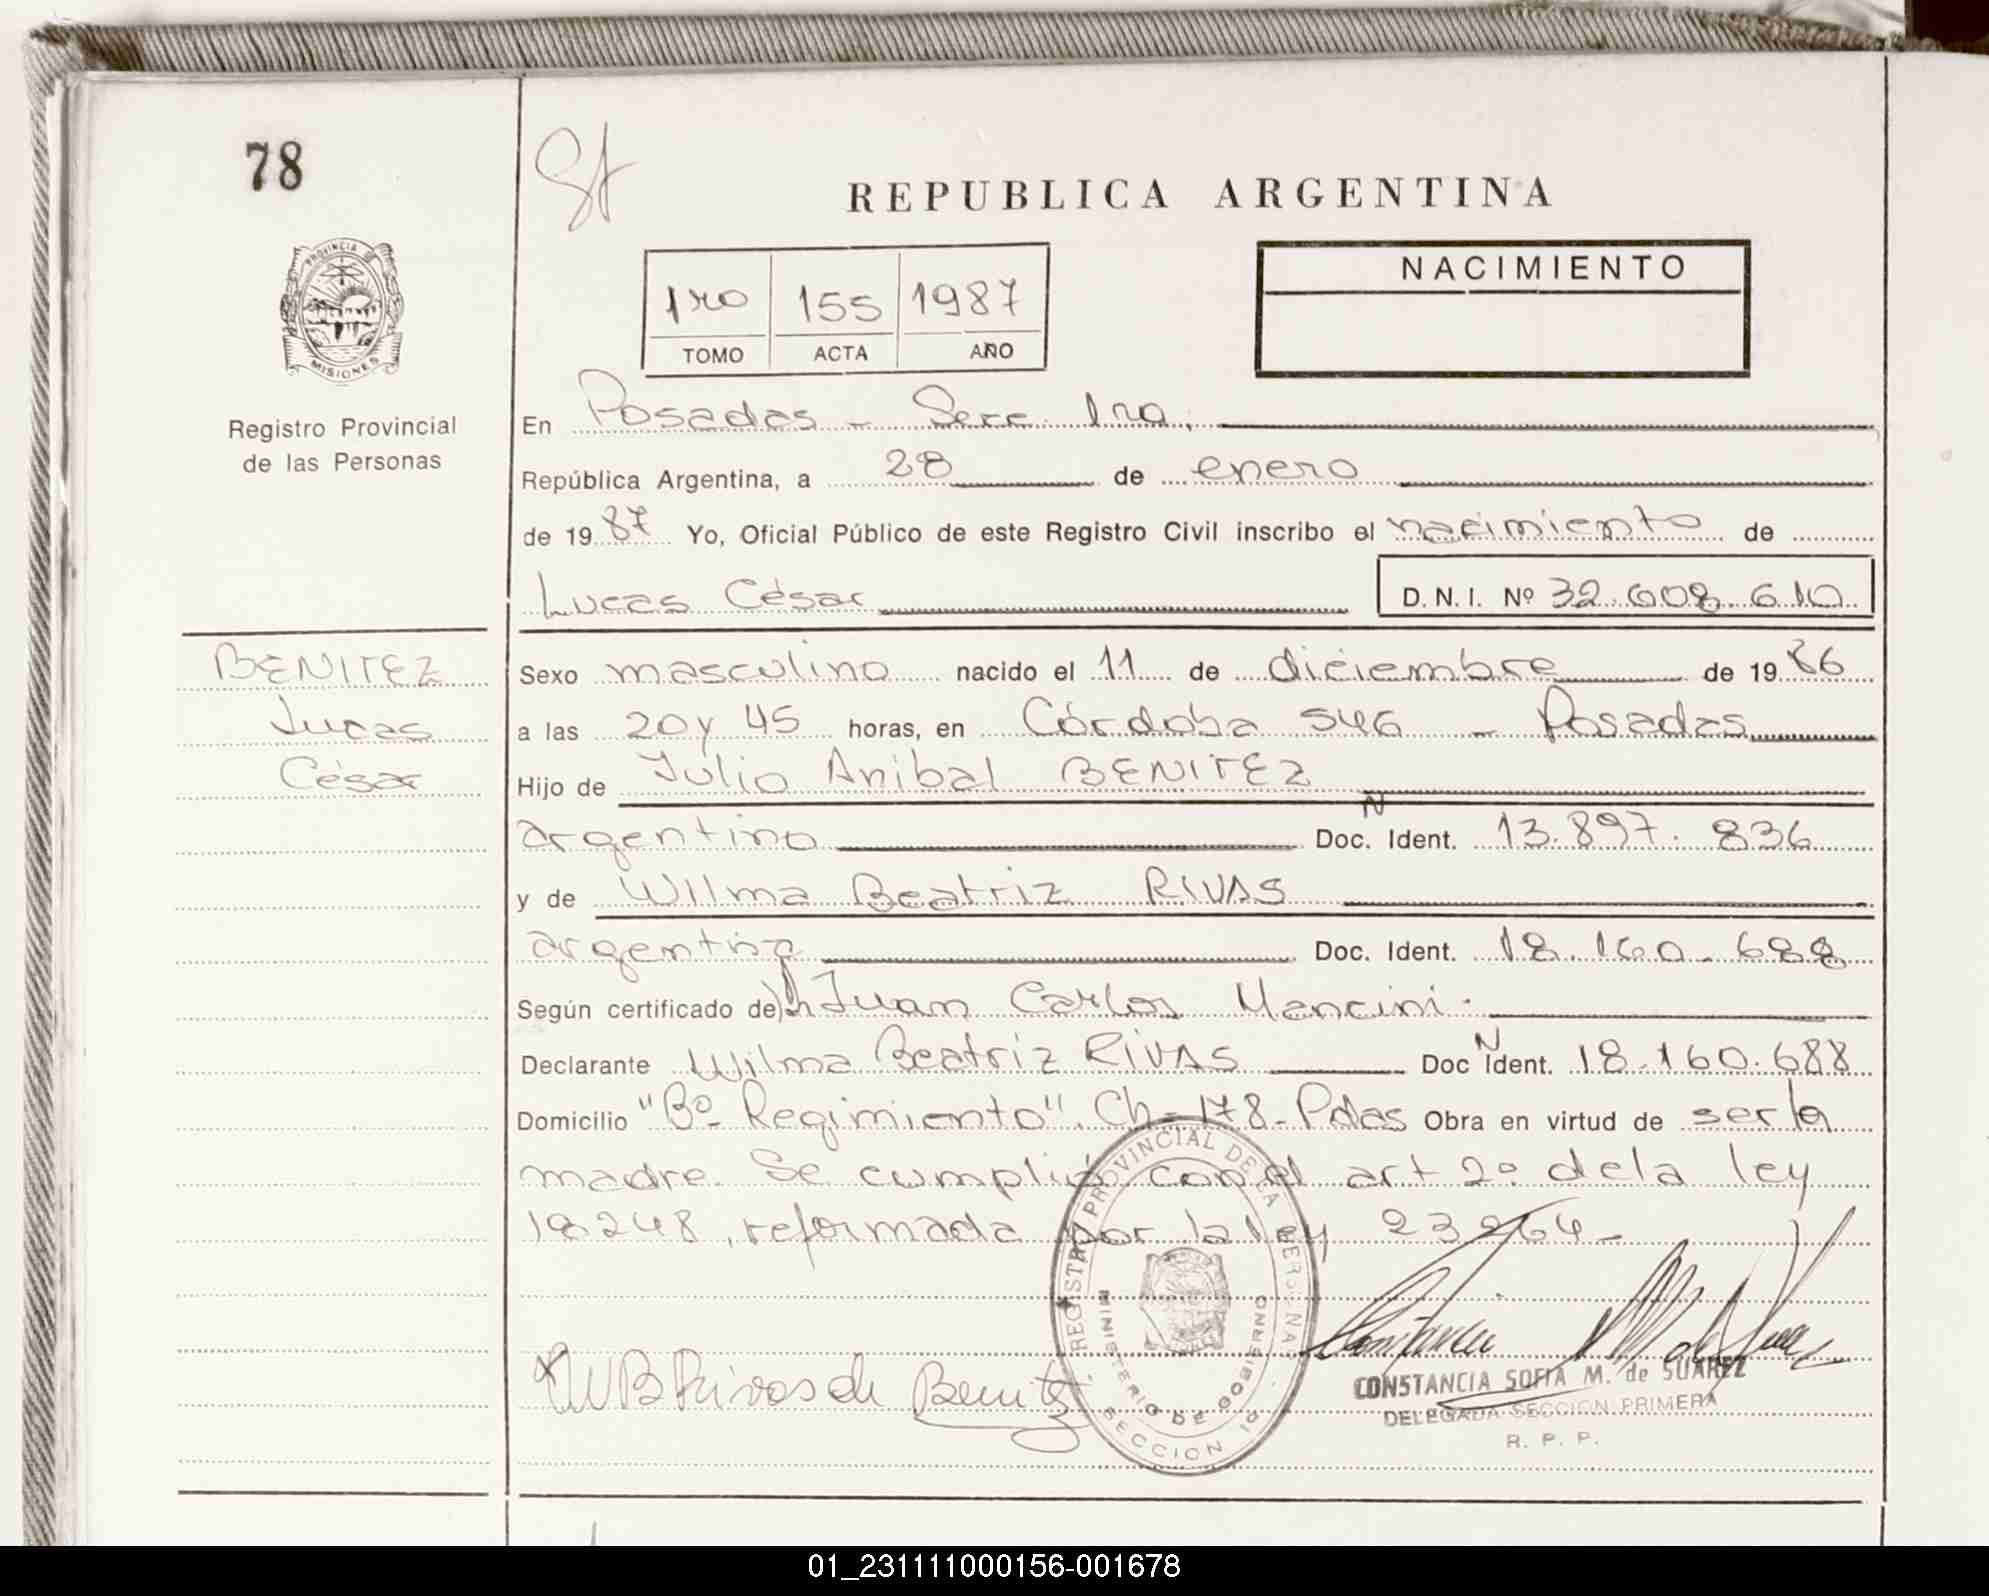 78
St
PROVINCIA
MISIONES
Registro Provincial
de las Personas
REPUBLICA ARGENTINA
1ro 155 1987
TOMO ACTA AÑO
NACIMIENTO
En Posadas - Secc. 1ra,
República Argentina, a 28 de enero
de 1987 Yo, Oficial Público de este Registro Civil inscribo el nacimiento de
Lucas César D.N.I. Nº 32.608.610
BENITEZ
Lucas
César
Sexo masculino nacido el 11 de diciembre de 1986
a las 20 y 45 horas, en Córdoba 546 - Posadas
Hijo de Julio Anibal BENITEZ
argentino Doc. N Ident. 13.897.836
y de Wilma Beatriz RIVAS
argentina Doc. Ident. 18.160.688
Según certificado de Juan Carlos Mancini.
Declarante Wilma Beatriz RIVAS Doc N Ident. 18.160.688
Domicilio "Bº Regimiento". Ch-178-Pdas Obra en virtud de ser la
madre. Se cumplió con el art 2º de la ley
18248, reformada por la ley 23264-
REGISTRO PROVINCIAL DE LA PERSONAS
MINISTERIO DE GOBIERNO
SECCION 1a
WB Rivas de Benitez
CONSTANCIA SOFIA M. de SUAREZ
DELEGADA SECCION PRIMERA
R. P. P.
01_231111000156-001678